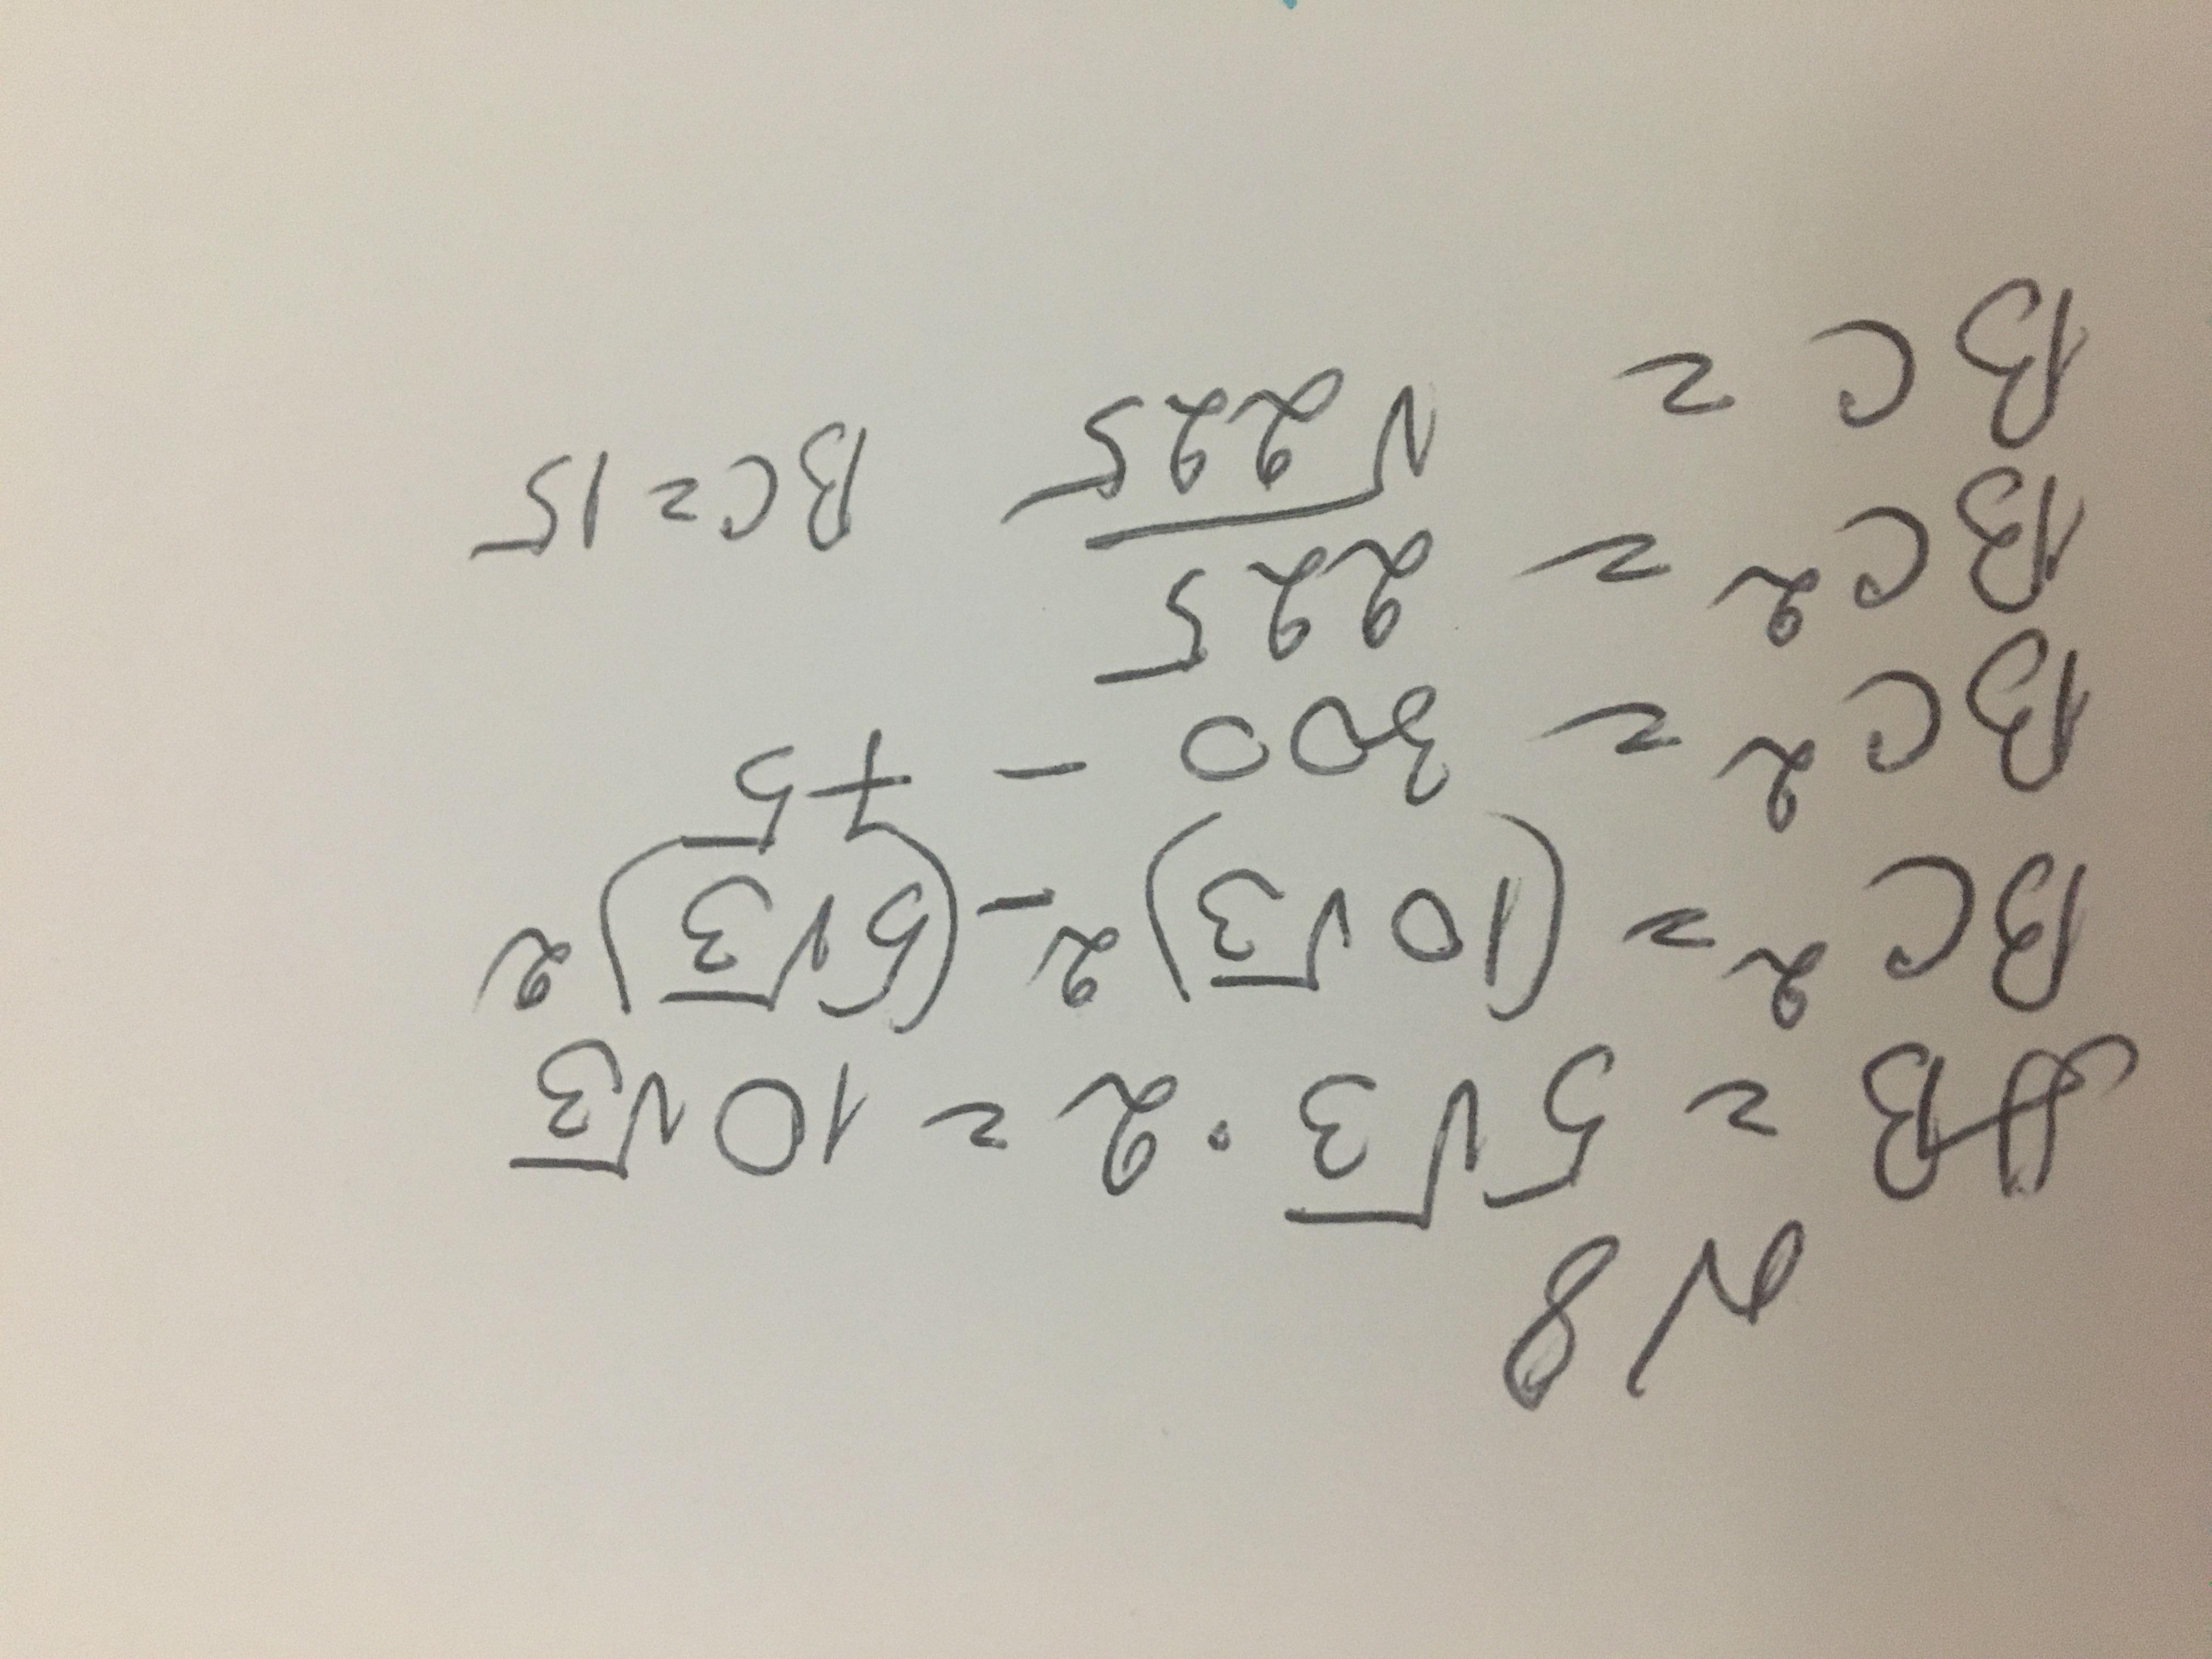 N8
AB = 5√3 · 2 = 10√3
BC² = (10√3)² - (5√3)²
BC² = 300 - 75
BC² = 225
BC = √225 BC = 15